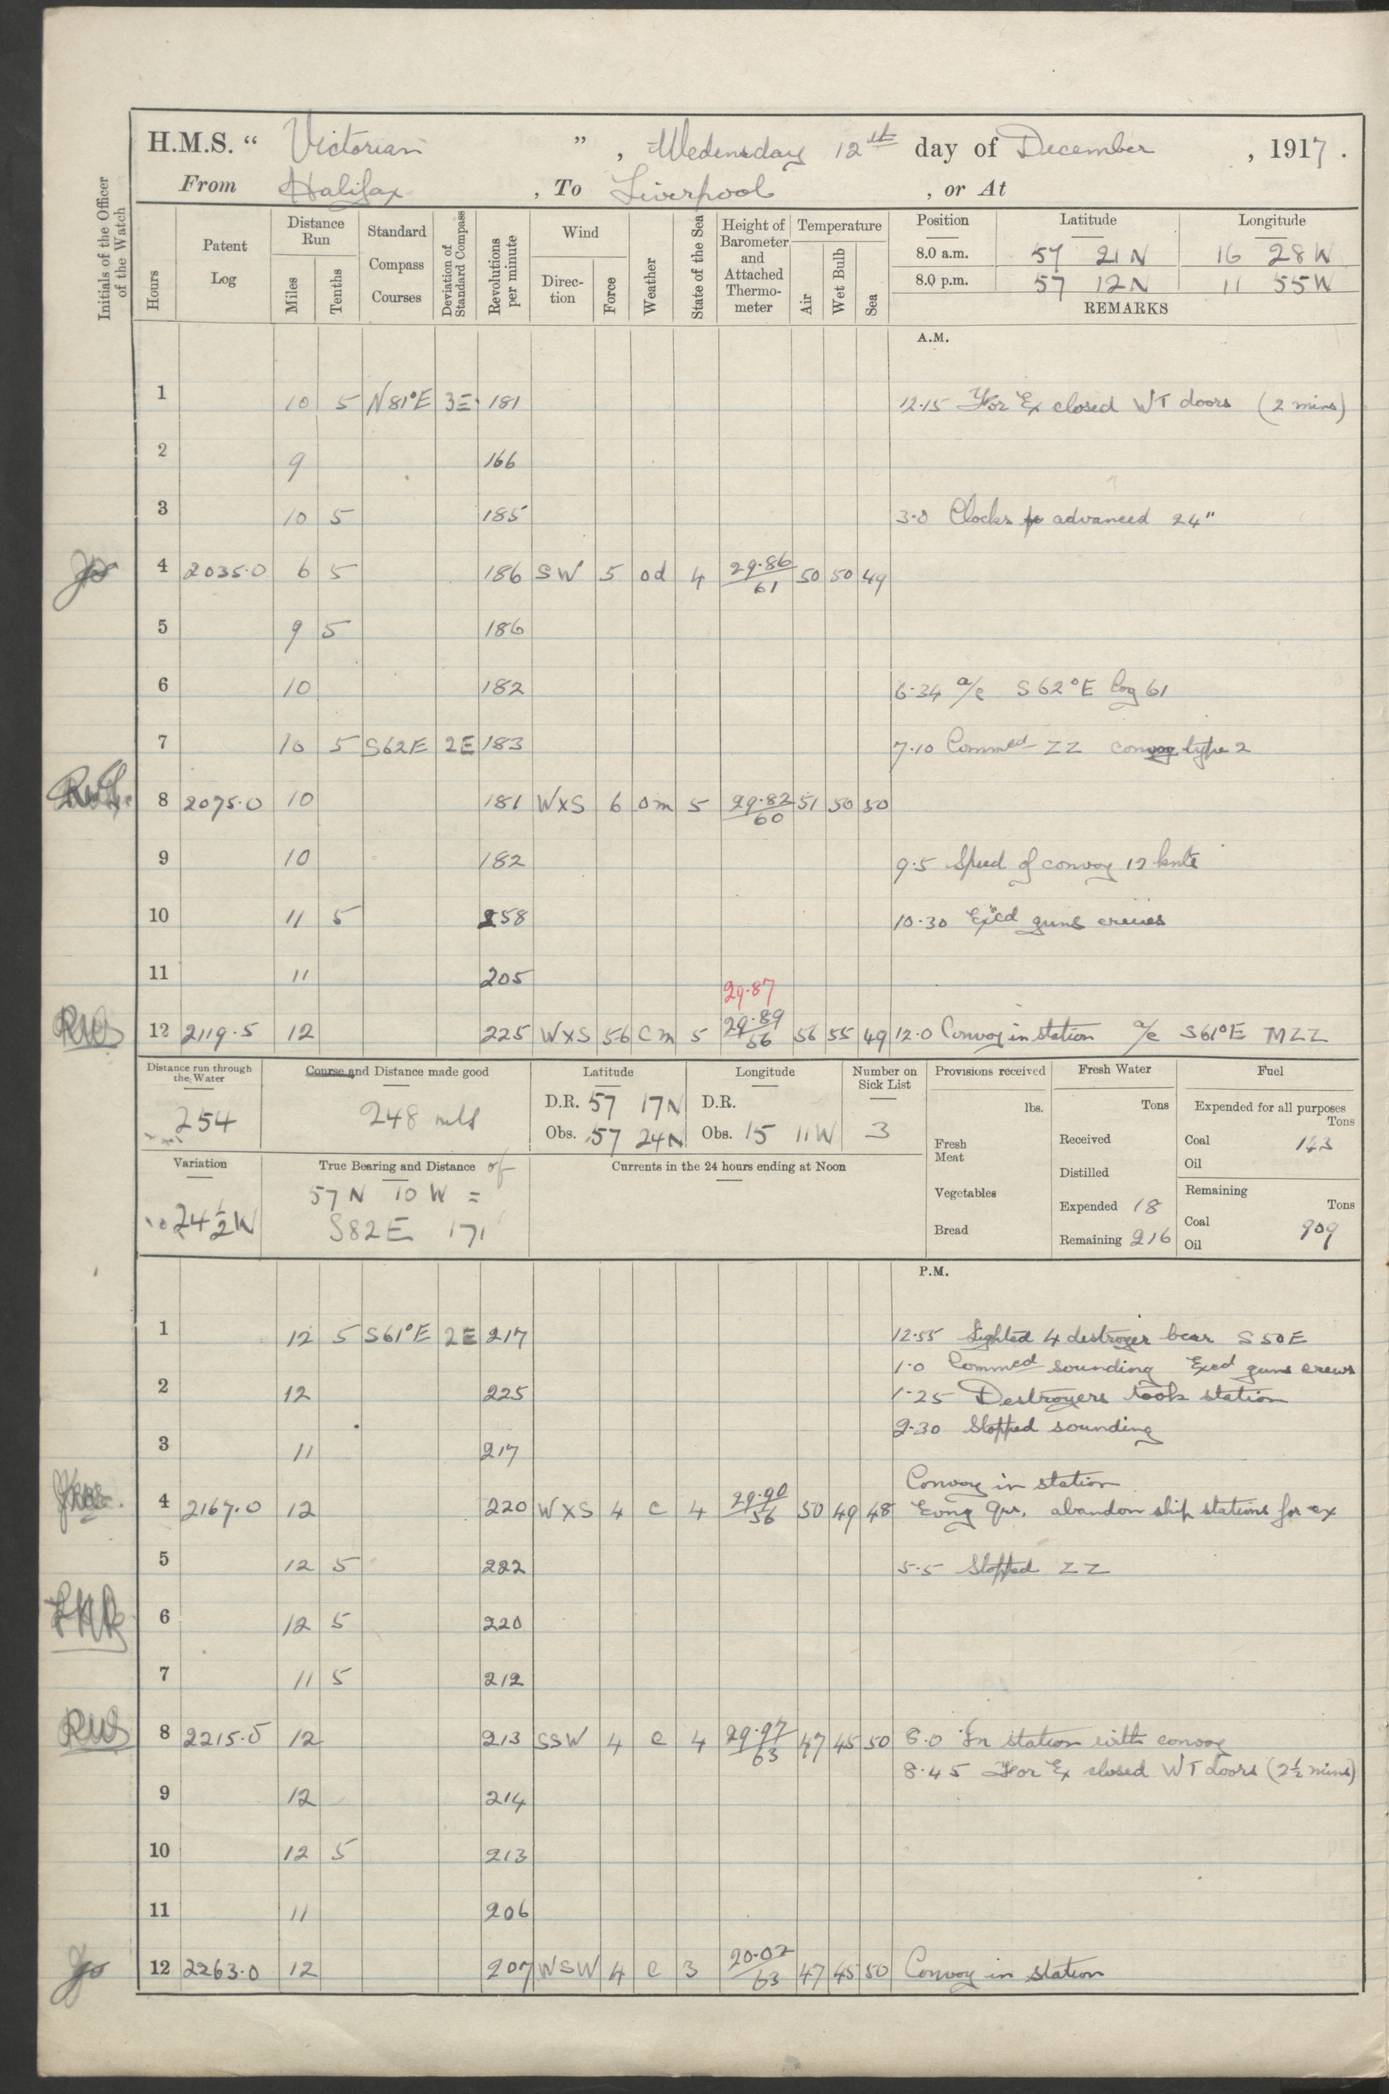 H.M.S. “ Victorian ” , Wedensday 12th day of December , 1917 .
From Halifax , To Liverpool , or At
Initials of the Officer of the Watch
Hours
Patent Log
Distance Run
Miles
Tenths
Standard Compass Courses
Deviation of Standard Compass
Revolutions per minute
Wind
Direction
Force
Weather
State of the Sea
Height of Barometer and Attached Thermometer
Temperature
Air
Wet Bulb
Sea
Position Latitude Longitude
8.0 a.m. 57 21 N 16 28 W
8.0 p.m. 57 12 N 11 55 W
REMARKS
A.M.
1 10 5 N81°E 3E 181 12.15 For Ex closed WT doors (2 mins)
2 9 166
3 10 5 185 3.0 Clocks advanced 24"
4 2035.0 6 5 186 SW 5 od 4 29.86/61 50 50 49
5 9 5 186
6 10 182 6.34 a/c S62°E log 61
7 10 5 S62E 2E 183 7.10 Commed ZZ convoy type 2
8 2075.0 10 181 WXS 6 om 5 29.82/60 51 50 50
9 10 182 9.5 Speed of convoy 12 knts
10 11 5 158 10.30 Ex'cd guns crews
11 11 205
29.87
RWS 12 2119.5 12 225 WXS 5-6 cm 5 29.89/56 56 55 49 12.0 Convoy in station a/c S61°E MZZ
Distance run through the Water 254
Course and Distance made good 248 mls
Latitude
D.R. 57 17N
Obs. 57 24N
Longitude
D.R.
Obs. 15 11W
Number on Sick List 3
Provisions received
lbs.
Fresh Meat
Vegetables
Bread
Fresh Water
Tons
Received
Distilled
Expended 18
Remaining 216
Fuel
Expended for all purposes
Tons
Coal 143
Oil
Remaining
Tons
Coal 909
Oil
Variation 24½W
True Bearing and Distance of
57 N 10 W =
S82E 171
Currents in the 24 hours ending at Noon
P.M.
1 12 5 S61°E 2E 217 12.55 Sighted 4 destroyer bear S50E
1.0 Commed sounding Exed guns crews
2 12 225 1.25 Destroyers took station
2.30 Stopped sounding
3 11 217
Convoy in station
4 2167.0 12 220 WXS 4 c 4 29.90/56 50 49 48 Evng Qrs. abandon ship stations for ex
5 12 5 222 5.5 Stopped ZZ
6 12 5 220
7 11 5 212
RWS 8 2215.5 12 213 SSW 4 c 4 29.97/63 47 45 50 8.0 In station with convoy
8.45 For Ex closed WT doors (2½ mins)
9 12 214
10 12 5 213
11 11 206
12 2263.0 12 207 WSW 4 c 3 20.02/63 47 45 50 Convoy in station